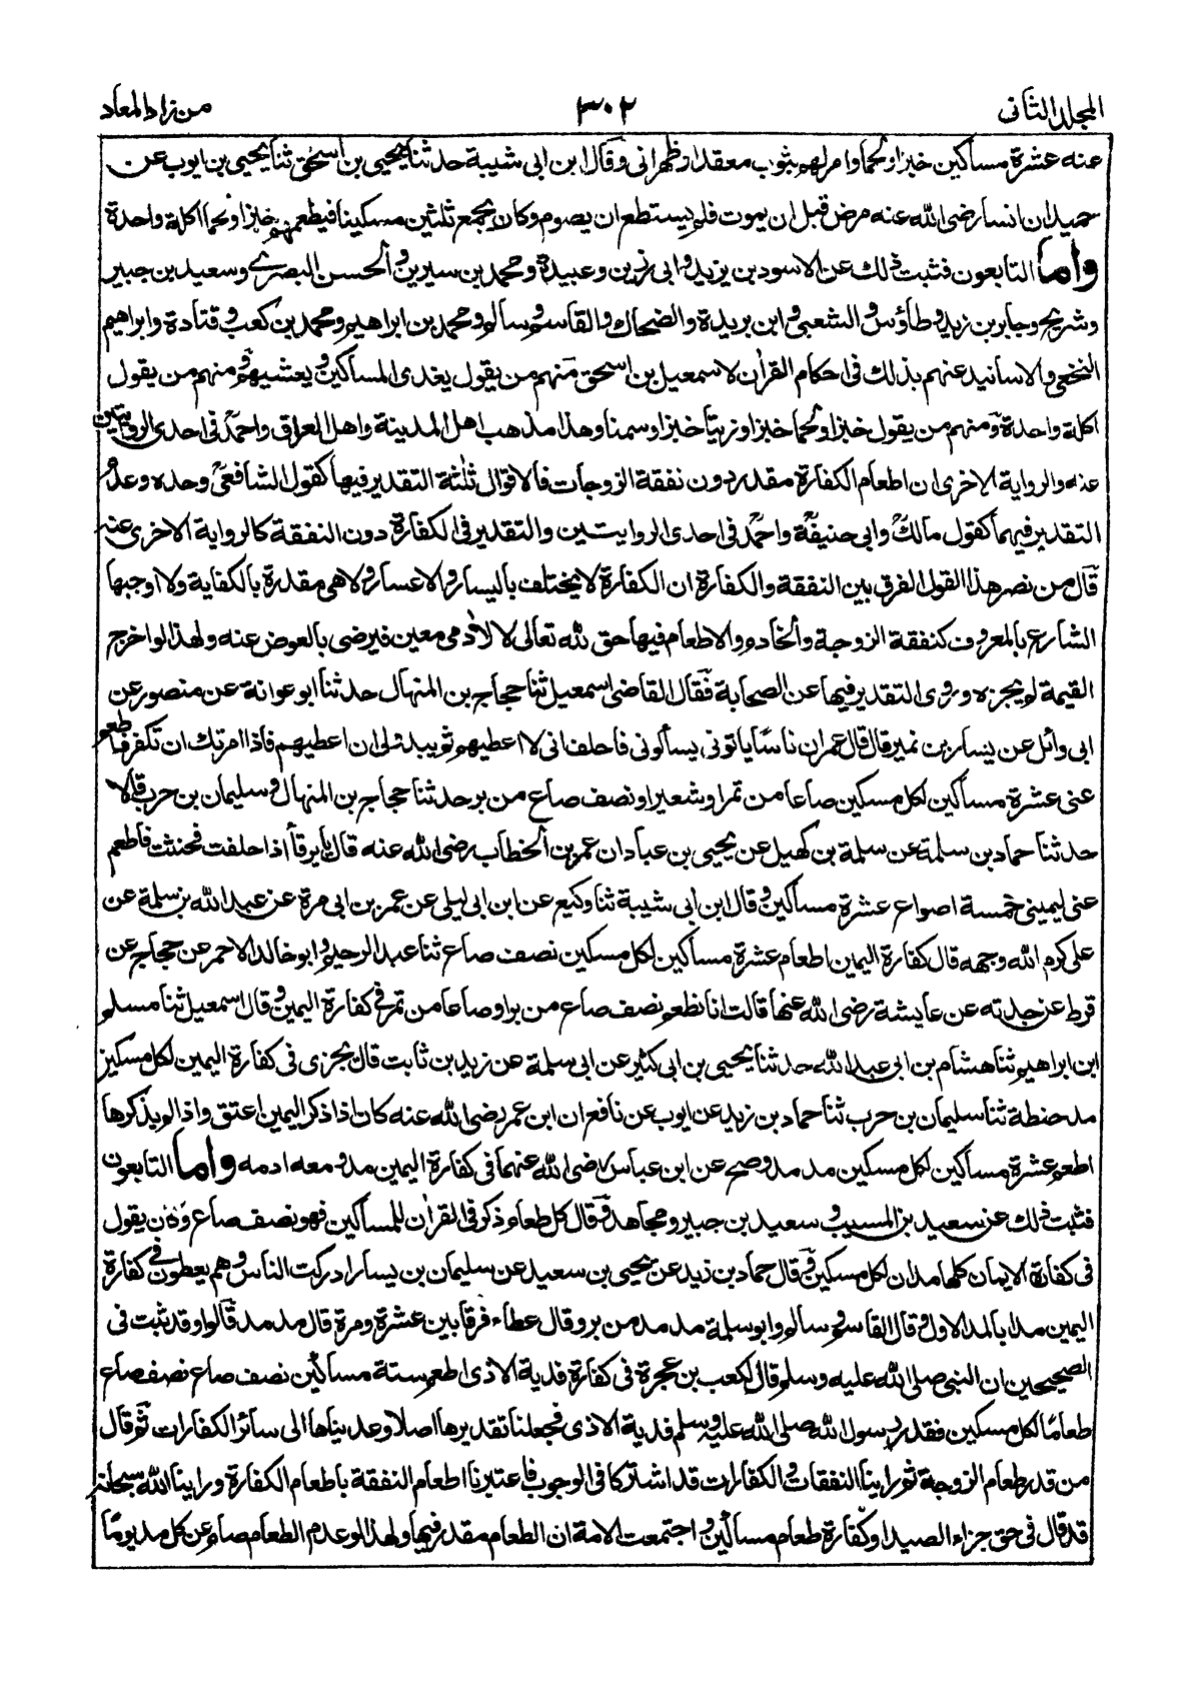 المجلد الثانى
٣٠٢
من زاد المعاد
عنه عشرة مساكين خبزا ولحما وامر لهم بثوب معقد او ظهرانى وقال ابن ابى شيبة حدثنا يحيى بن اسحق ثنا يحيى بن ايوب عن
حميد ان انسا رضى الله عنه مرض قبل ان يموت فلم يستطع ان يصوم وكان يجمع ثلثين مسكينا فيطعمهم خبزا ولحما اكلة واحدة
واما التابعون فثبت ذلك عن الاسود بن يزيد وابى رزين وعبيدة ومحمد بن سيرين والحسن البصرى وسعيد بن جبير
وشريح وجابر بن زيد وطاؤس والشعبى وابن بريدة والضحاك والقاسم وسالم ومحمد بن ابراهيم ومحمد بن كعب وقتادة وابراهيم
النخعى والاسانيد عنهم بذلك فى احكام القران لاسمعيل بن اسحق منهم من يقول يغدى المساكين ويعشيهم ومنهم من يقول
اكلة واحدة ومنهم من يقول خبزا ولحما خبزا وزيتا خبزا وسمنا وهذا مذهب اهل المدينة واهل العراق واحمد فى احدى الروايتين
عنه والرواية الاخرى ان اطعام الكفارة مقدر دون نفقة الزوجات فالاقوال ثلثة التقدير فيها كقول الشافعى وحده وعدم
التقدير فيهما كقول مالك وابى حنيفة واحمد فى احدى الروايتين والتقدير فى الكفارة دون النفقة كالرواية الاخرى عنه
قال من نصر هذا القول الفرق بين النفقة والكفارة ان الكفارة لا يختلف باليسار والاعسار ولا هى مقدرة بالكفاية ولا اوجبها
الشارع بالمعروف كنفقة الزوجة والخادم والاطعام فيها حق لله تعالى لا لادمى معين فيرضى بالعوض عنه ولهذا لو اخرج
القيمة لم يجزه وروى التقدير فيها عن الصحابة فقال القاضى اسمعيل ثنا حجاج بن المنهال حدثنا ابو عوانة عن منصور عن
ابى وائل عن يسار بن نمير قال قال عمر ان ناسا ياتونى يسألونى فاحلف انى لا اعطيهم ثم يبدولى ان اعطيهم فاذا امرتك ان تكفر فاطعم
عنى عشرة مساكين لكل مسكين صاعا من تمر او شعير او نصف صاع من بر حدثنا حجاج بن المنهال وسليمان بن حرب قالا
حدثنا حماد بن سلمة عن سلمة بن كهيل عن يحيى بن عباد ان عمر بن الخطاب رضى الله عنه قال يا يرفأ اذا حلفت فحنثت فاطعم
عنى ليمينى خمسة اصواع عشرة مساكين وقال ابن ابى شيبة ثنا وكيع عن ابن ابى ليلى عن عمر بن ابى مرة عن عبد الله بن سلمة عن
على كرم الله وجهه قال كفارة اليمين اطعام عشرة مساكين لكل مسكين نصف صاع ثنا عبد الرحيم وابو خالد الاحمر عن حجاج عن
قرط عن جدته عن عايشة رضى الله عنها قالت انا نطعم نصف صاع من بر او صاعا من تمر فى كفارة اليمين وقال اسمعيل ثنا مسلم
ابن ابراهيم ثنا هشام بن ابى عبد الله حدثنا يحيى بن ابى كثير عن ابى سلمة عن زيد بن ثابت قال يجزى فى كفارة اليمين لكل مسكين
مد حنطة ثنا سليمان بن حرب ثنا حماد بن زيد عن ايوب عن نافع ان ابن عمر رضى الله عنه كان اذا ذكر اليمين اعتق واذا لم يذكرها
اطعم عشرة مساكين لكل مسكين مد مد وصح عن ابن عباس رضى الله عنهما فى كفارة اليمين مد ومعه ادمه واما التابعون
فثبت ذلك عن سعيد بن المسيب وسعيد بن جبير ومجاهد وقال كل طعام ذكر فى القران للمساكين فهو نصف صاع وكان يقول
فى كفارة الايمان كلها مدان لكل مسكين وقال حماد بن زيد عن يحيى بن سعيد عن سليمان بن يسار ادركت الناس وهم يعطون فى كفارة
اليمين مدا بالمد الاول وقال القاسم وسالم وابو سلمة مد مد من بر وقال عطاء فرقا بين عشرة ومرة قال مد مد قالوا وقد ثبت فى
الصحيحين ان النبى صلى الله عليه وسلم قال لكعب بن عجرة فى كفارة فدية الاذى اطعم ستة مساكين نصف صاع نصف صاع
طعاما لكل مسكين فقدر رسول الله صلى الله عليه وسلم فدية الاذى فجعلنا تقديرها اصلا وعديناها الى سائر الكفارات ثم قال
من قدر طعام الزوجة ثم راينا النفقات والكفارات قد اشتركا فى الوجوب فاعتبرنا اطعام النفقة باطعام الكفارة وراينا الله سبحانه
قد قال فى حق جزاء الصيد او كفارة طعام مساكين واجتمعت الامة ان الطعام مقدر فيها ولهذا لو عدم الطعام صام عن كل مد يوما